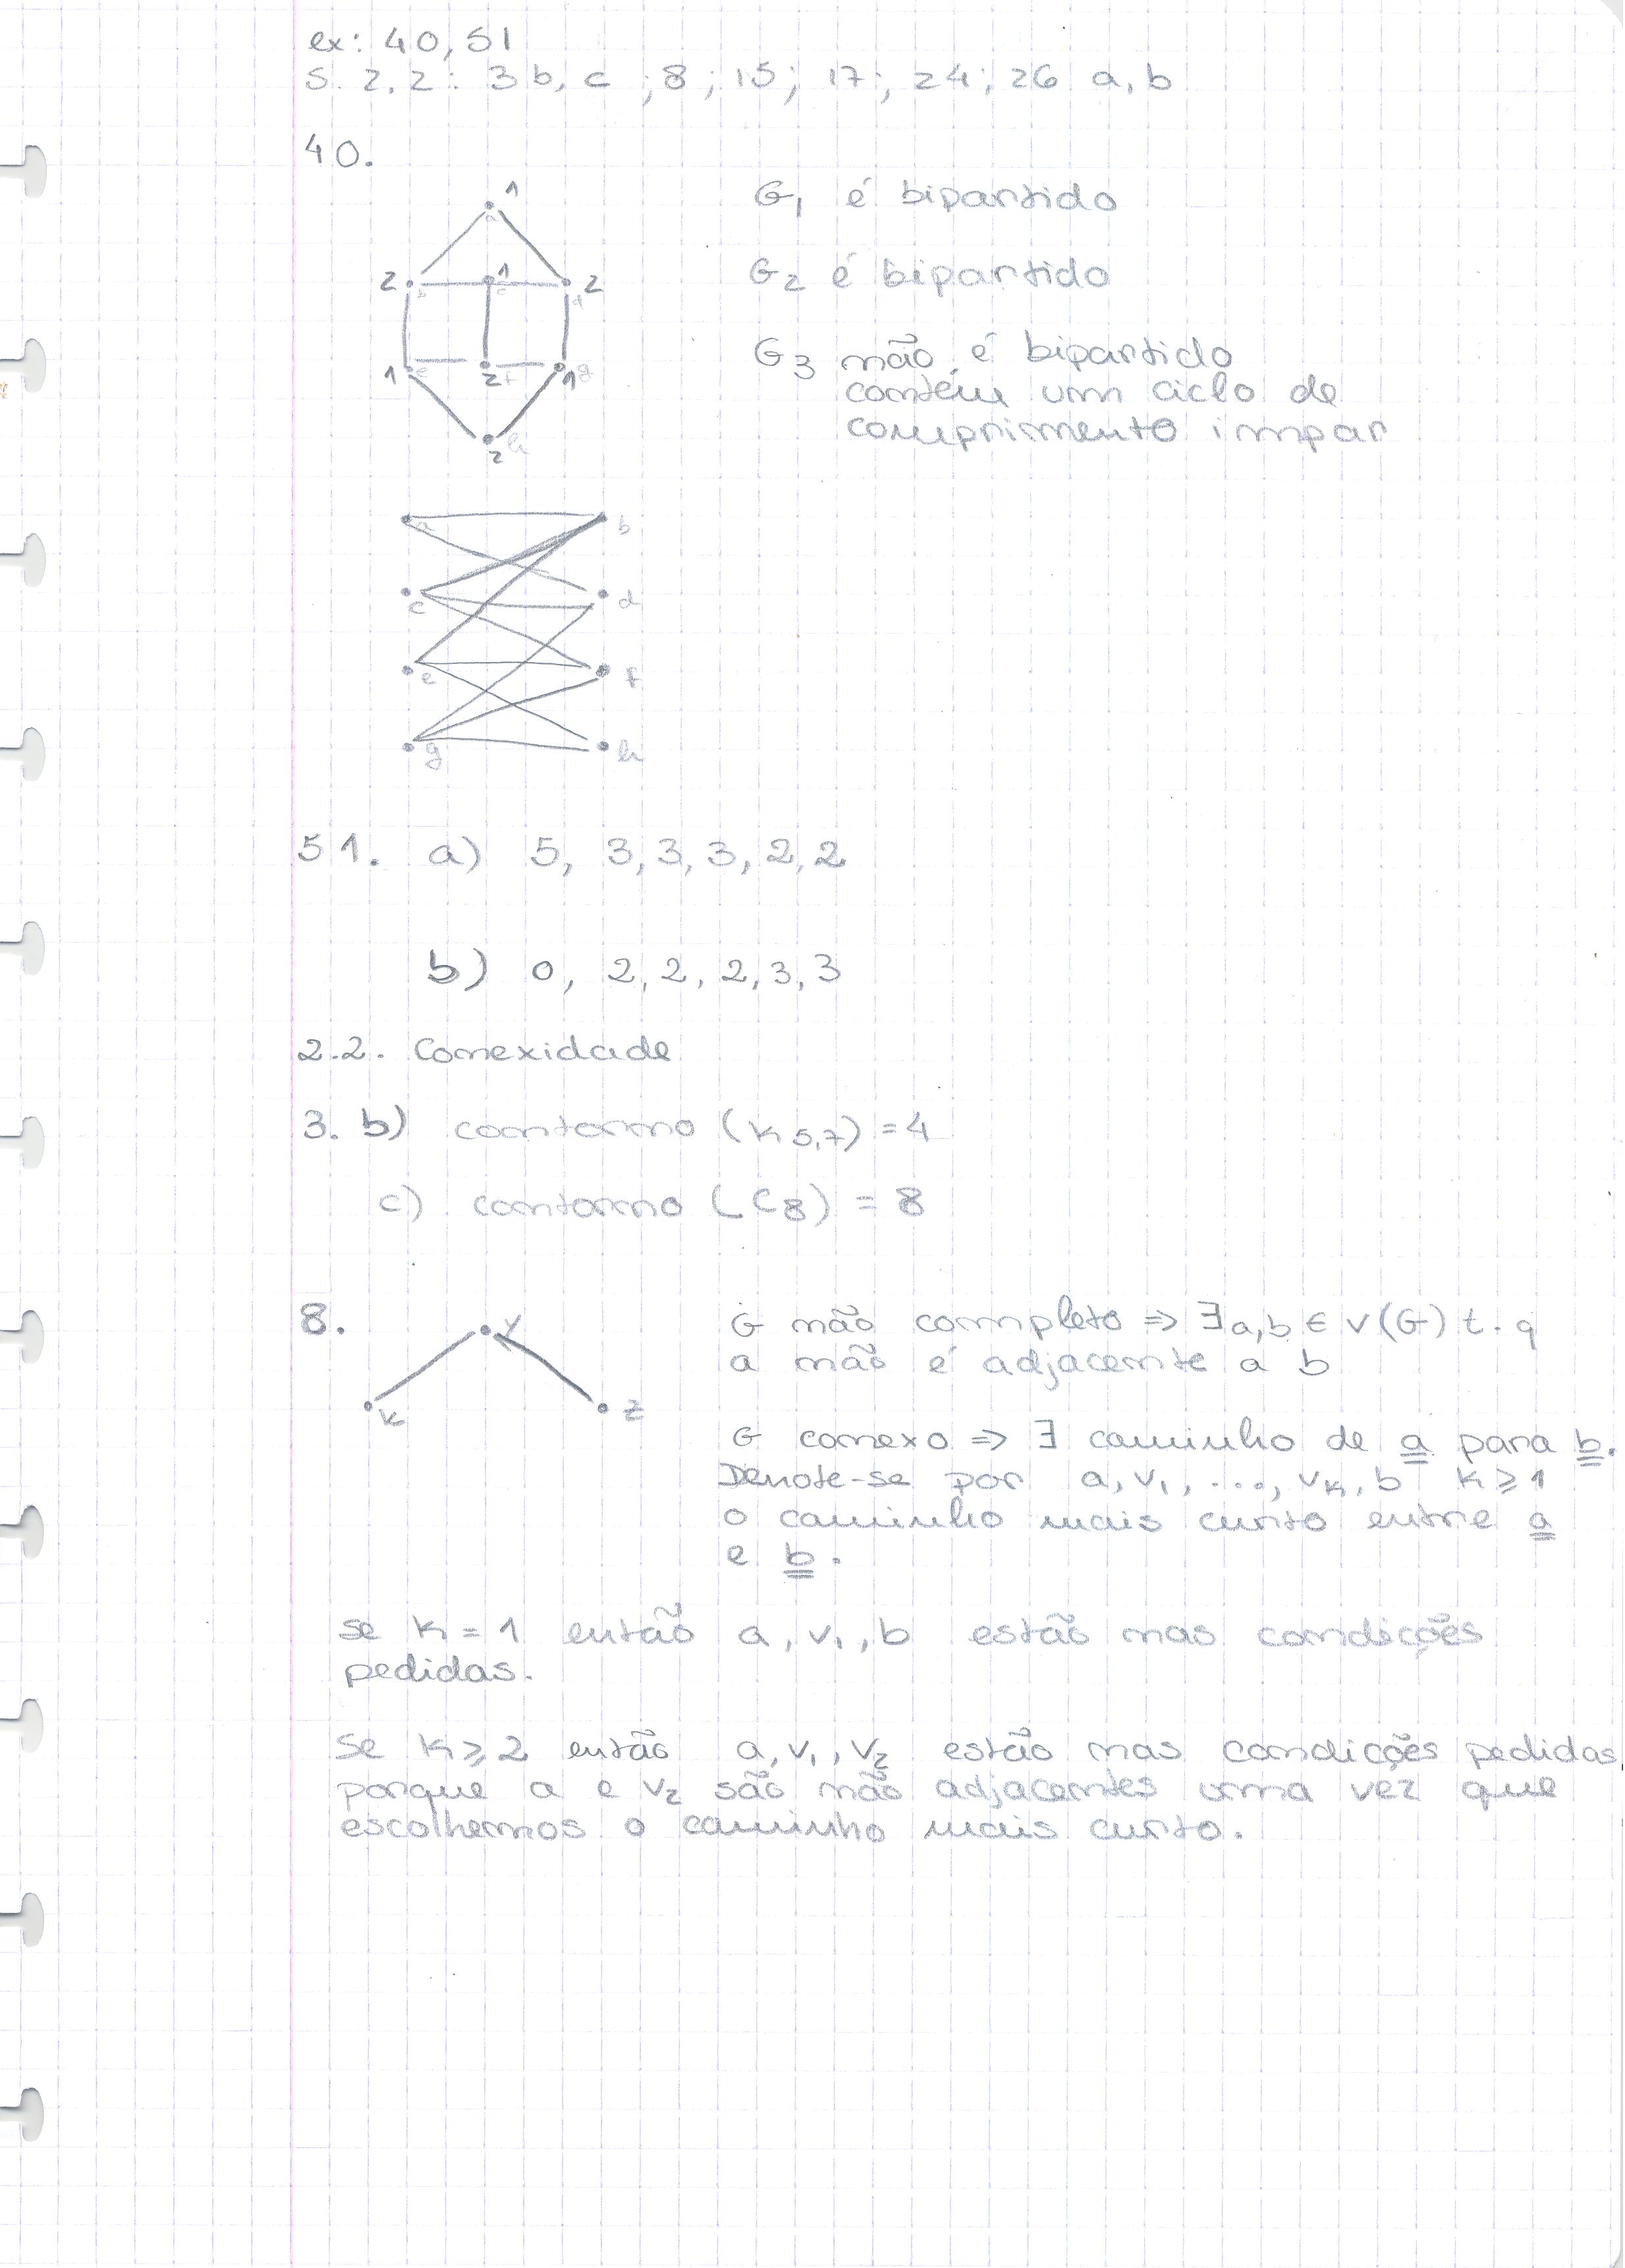 ex: 40, 51
S. 2.2: 3 b, c ; 8 ; 15 ; 17 ; 24 ; 26 a, b
40.
1
a
2 b 1 c d 2
1 e 2 f 1 g
2 h
G1 é bipartido
G2 é bipartido
G3 não é bipartido
contém um ciclo de
comprimento impar
a b
c d
e f
g h
51. a) 5, 3, 3, 3, 2, 2
b) 0, 2, 2, 2, 3, 3
2.2. Conexidade
3. b) contorno (K5,7) = 4
c) contorno (C8) = 8
8.
y
x z
G não completo ⇒ ∃ a, b ∈ V(G) t.q
a não é adjacente a b
G conexo ⇒ ∃ caminho de a para b.
Denote-se por a, v1, ..., vk, b k ⩾ 1
o caminho mais curto entre a
e b.
Se k = 1 então a, v1, b estão nas condições
pedidas.
Se k ⩾ 2 então a, v1, v2 estão nas condições pedidas
porque a e v2 são não adjacentes uma vez que
escolhemos o caminho mais curto.